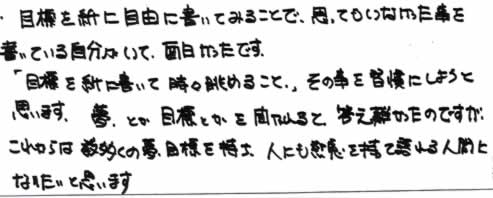 ・目標を紙に自由に書いてみることで、思ってもいなかった事を
書いている自分がいて、面白かったです。
「目標を紙に書いて時々眺めること」、その事を習慣にしようと
思います。夢、とか目標とかを聞かれると、答え難かったのですが、
これからは数多くの夢、目標を持ち、人にも熱意を持て語れる人間に
なりたいと思います